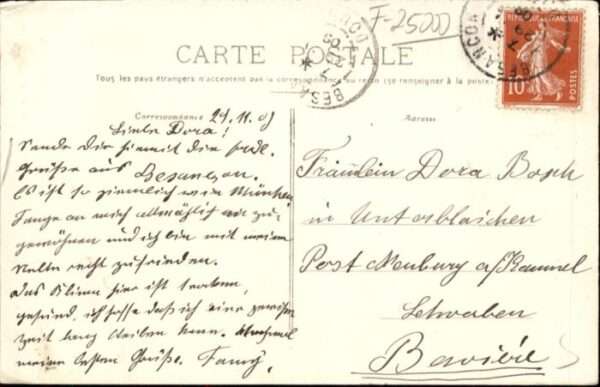 F-25000
CARTE POSTALE
Tous les pays étrangers n'acceptent pas la correspondance au recto (se renseigner à la poste)
BESANCON
REPUBLIQUE FRANÇAISE
10
POSTES
Correspondance 29.11.09
Adresse
Liebe Dora!
Sende Dir hiemit die
Grüße aus Besançon.
Es ist so ziemlich wie München
Fange an mich allmählich
gewöhnen und ich bin mit meiner
Stelle recht zufrieden.
Das Klima hier ist trocken,
gesund, ich hoffe daß ich eine gewisse
Zeit lang bleiben kann. Abermal
meine besten Grüße. Fanny.
Fräulein Dora Bosch
in Unterblaichen
Post Neuburg a/Kammel
Schwaben
Bavière